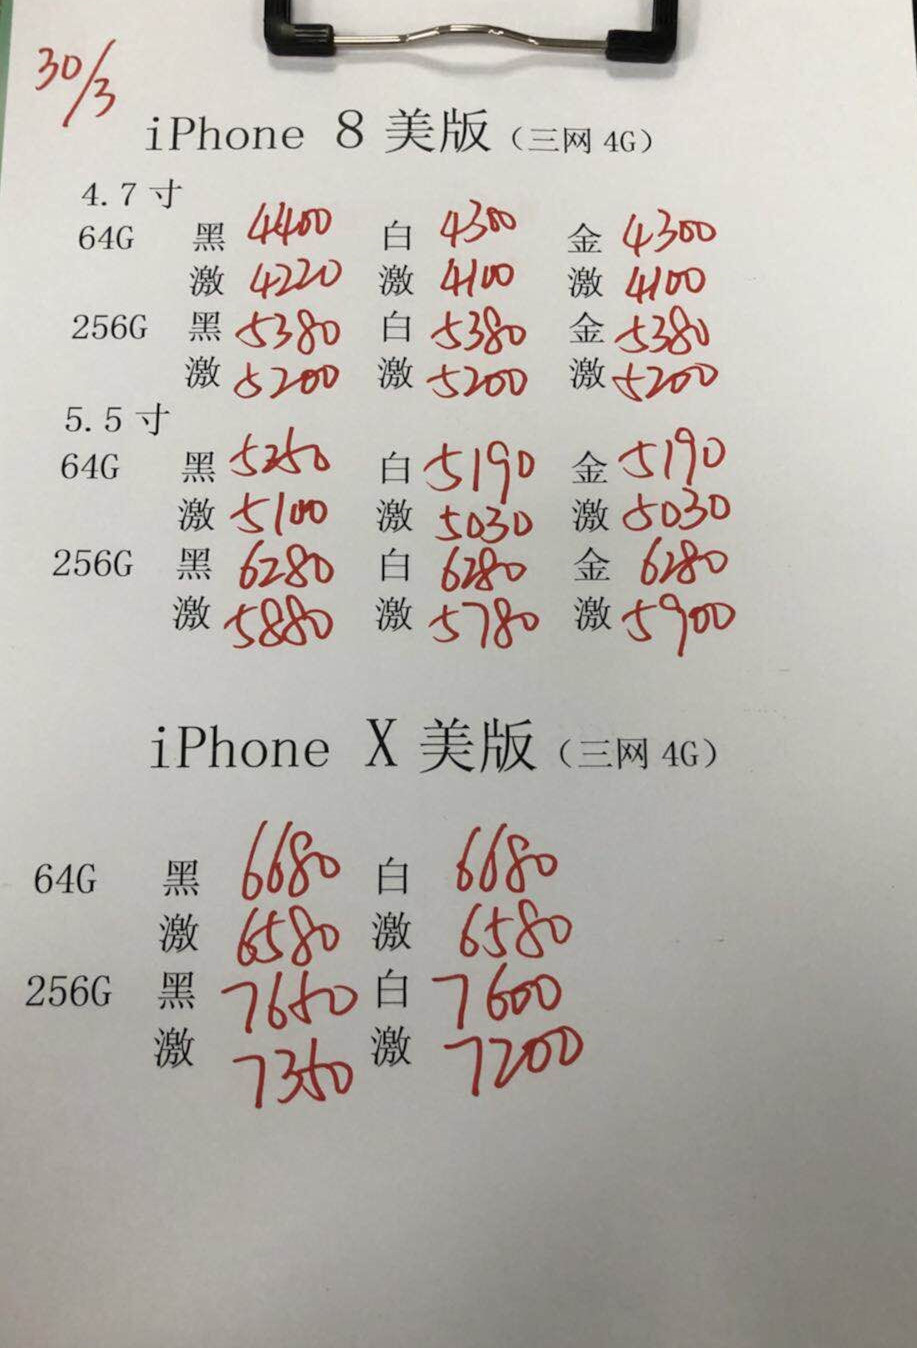 30/3
iPhone 8 美版（三网 4G）
4.7 寸
64G 黑 4400 白 4300 金 4300
激 4220 激 4100 激 4100
256G 黑 5380 白 5380 金 5380
激 5200 激 5200 激 5200
5.5 寸
64G 黑 5250 白 5190 金 5190
激 5100 激 5030 激 5030
256G 黑 6280 白 6280 金 6280
激 5880 激 5780 激 5900
iPhone X 美版（三网 4G）
64G 黑 6680 白 6680
激 6580 激 6580
256G 黑 7650 白 7600
激 7350 激 7200